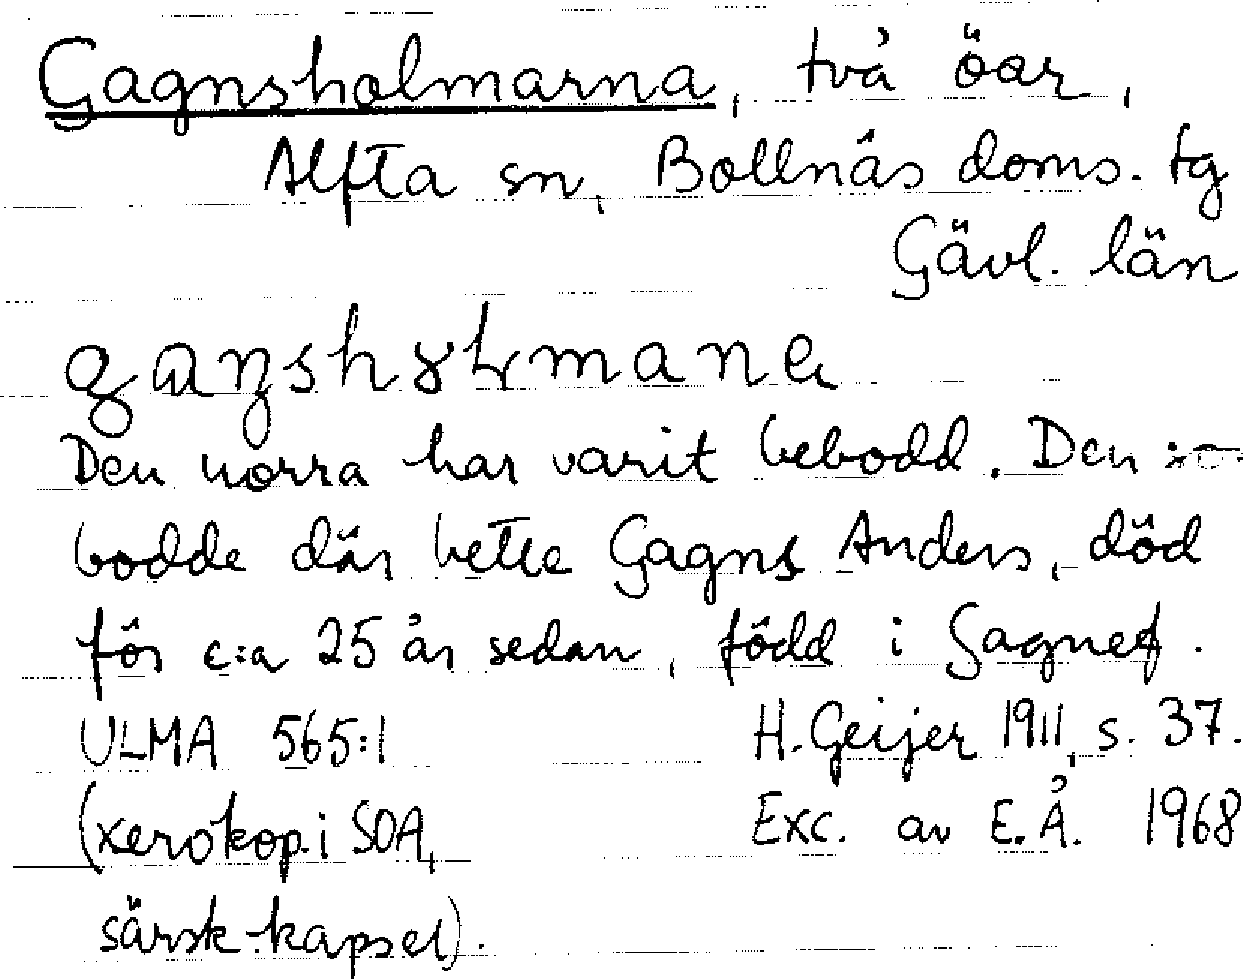 Gagnsholmarna, två öar,
Alfta sn, Bollnäs doms. tg
Gävl. län
Den norra har varit bebodd. Den so
bodde där hette Gagns Anders, död
för c:a 25 år sedan, född i Gagnef.
ULMA 565:1 H. Geijer 1911, s. 37.
(xerokop. i SOA, Exc. av E.Å. 1968
särsk. kapsel).